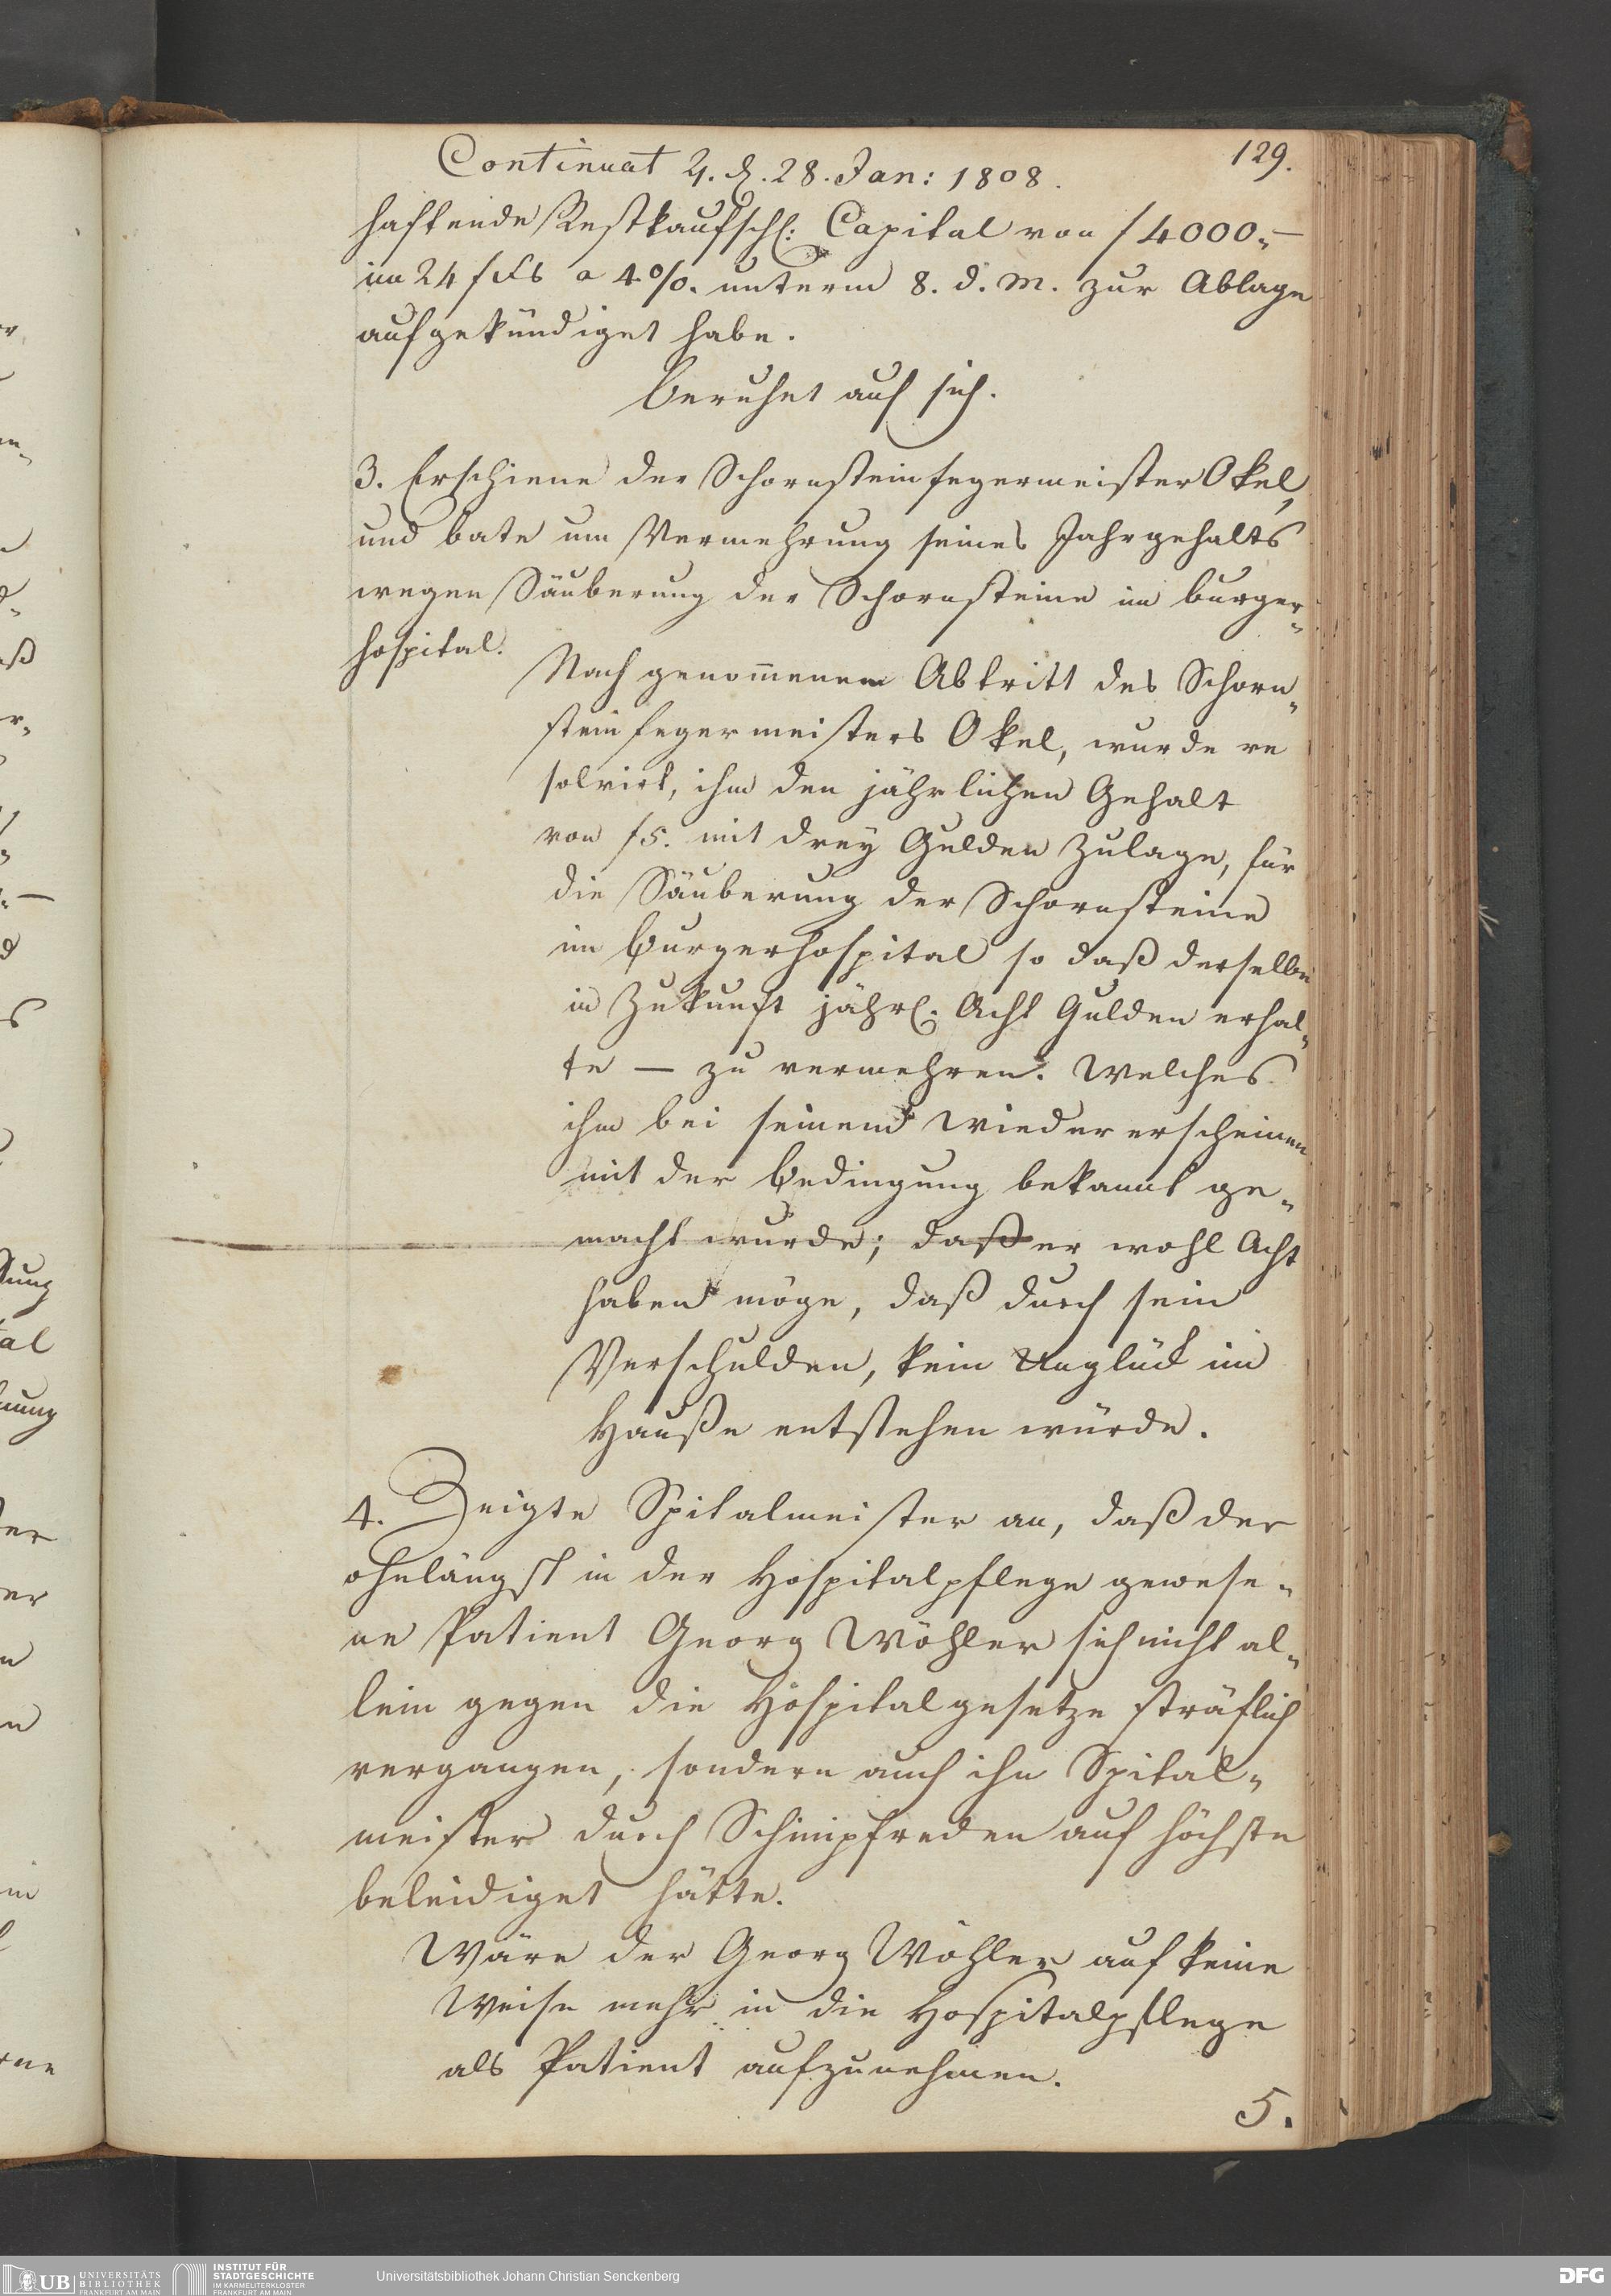 129.
Continuat 4. d. 28. Jan: 1808.
haftende Restkaufschl: Capital von f 4000.,–
im 24 f Fß a 4%. unterm 8. d. M. zur Ablage
aufgekündiget habe.
Beruhet auf sich.
3. Erschiene der Schornsteinfegermeister Okel,
und bate um Vermehrung seines Jahrgehalts
wegen Säuberung der Schornsteine im burger„
hospital.
Nach genom̅enem Abtritt des Schorn„
steinfegermeisters Okel, wurde re
solvirt, ihm den jährlichen Gehalt
von f 5. mit drey Gulden Zulage, für
die Säuberung der Schornsteine
im Burgerhospital so daß derselbe
in Zukunft jährl. Acht Gulden erhal„
te — zu vermehren. Welches
ihm bei seinem Wiedererscheinen
mit der Bedingung bekannt ge„
macht wurde; daß er wohl Acht
haben möge, daß durch sein
Verschulden, kein Unglück im
Hauße entstehen würde.
4. Zeigte Spitalmeister an, daß der
ohnlängst in der Hospitalpflege gewese„
ne Patient Georg Wöhler sich nicht al„
lein gegen die Hospitalgesetze sträflich
vergangen, sondern auch ihn Spital„
meister durch Schimpfreden auf höchste
beleidiget hätte.
Wäre der Georg Wöhler auf keine
Weise mehr in die Hospitalpflege
als Patient aufzunehmen.
5.
UB UNIVERSITÄTS
BIBLIOTHEK
FRANKFURT AM MAIN
INSTITUT FÜR
STADTGESCHICHTE
IM KARMELITERKLOSTER
FRANKFURT AM MAIN
Universitätsbibliothek Johann Christian Senckenberg
DFG